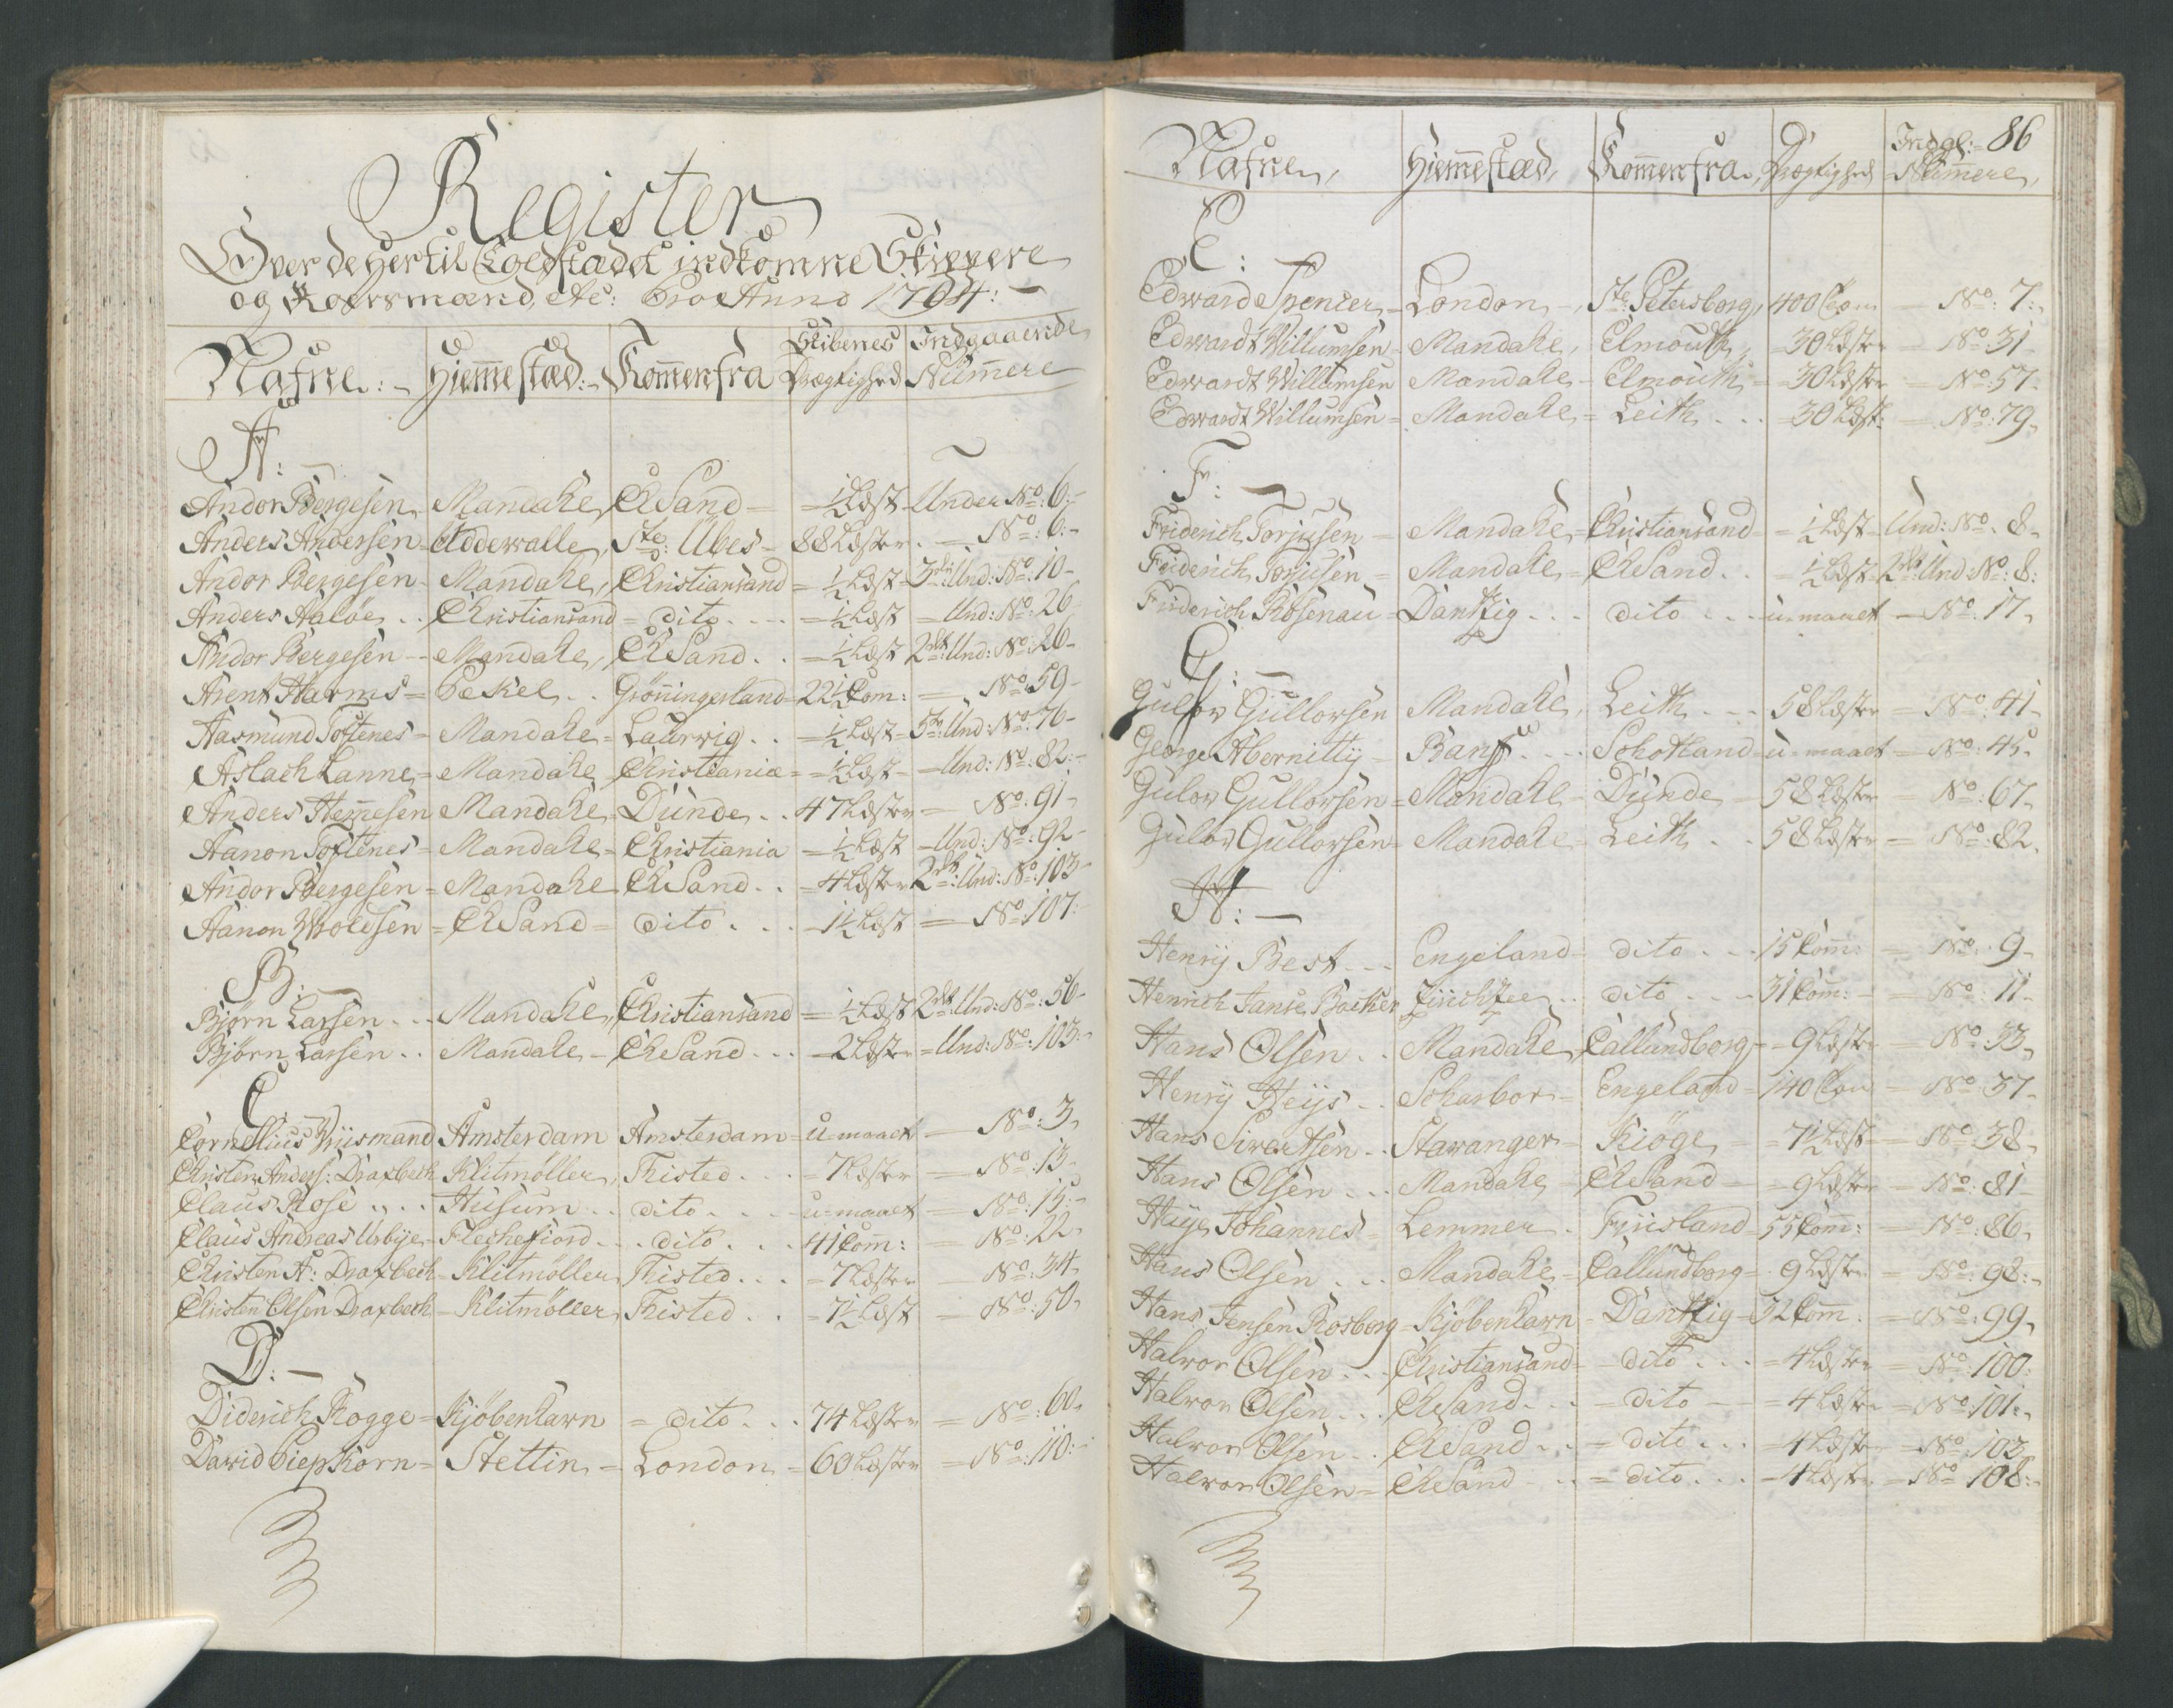 Register
Over de Her til Toldstædet indkomne Skippere
og Koersmænd etc: Pro Anno 1794:-
Nafne:- Hiem̄estæd:- Kom̄en fra Skibenes Drægtighed Indgaaende Num̄ere
A:-
Andor Bergesen Mandahl, ChSand - ½ Læst - Under No: 6:-
Anders Andersen - Uddewalle, Ste: Ubes - 88 Læster. - No: 6:-
Andor Bergesen - Mandahl, Christiansand = ½ Læst - 3die Und: No: 10-
Anders Aaløe .. Christiansand = dito .... = ½ Læst = Und: No: 26-
Andor Bergesen - Mandahl, ChSand .. = ½ Læst 2det Und: No: 26-
Arent Harms = Pekel .. Grøningerland = 22½ Com: = No: 59-
Aasmund Toftenes = Mandahl = Laurwig .. = ½ Læst - 5te Und: No: 76-
Aslach Lanne, = Mandahl Christiania = = ½ Læst - = Und: No: 82:-
Anders Hem̄esen Mandahl, Dunde .. 47 Læster = No: 91-
Aanon Toftenes = Mandahl = Christiania = ½ Læst = Und: No: 92-
Andor Bergesen = Mandahl ChSand .. = 4 Læster 2det Und: No: 103-
Aanon Woldsen = ChSand = dito ... - 1½ Læst = No: 107:
B:-
Bjørn Larsen ... Mandahl, Christiansand = ½ Læst 2det Und: No: 56-
Bjørn Larsen .. Mandahl - ChSand ... - 2 Læster = Und: No: 103:-
C
Cornelius Wiismand Amsterdam Amsterdam = u-maalt - No: 3,
Christen Anders: Draxbech Klitmøller, Tisted ... = 7 Læster = No: 13-
Claus Rose .... Husum .. dito .... u-maalt = No: 15:-
Claus Andreas Urbye - Flechefiord .. dito ... 41 Com̄: = No: 22-
Christen A: Draxbech - Klitmøller Tisted ... = 7 Læster No: 34,
Christen Olsen Draxbech - Klitmøller Tisted ... = 7½ Læst = No: 50,
D:-
Diderich Kogge = Kjøbenhavn = dito ... 74 Læster = No: 60,
David Piepkorn = Stettin = London = 60 Læster = No: 110:-
86
Nafne, Hiem̄estæd, Kom̄en fra, Drægtighed Indg: Num̄ere,
E:-
Edward Spencer - London -, Ste Petersborg, 400 Com = No: 7:,
Edwardt Willumsen - Mandahl, Elmouth, = 30 Læster = No: 31-
Edwardt Willumsen Mandahl - Elmouth = 30 Læster = No: 57-
Edwardt Willumsen = Mandahl = Leith ... = 30 Læst: = No: 79,
F:-
Friderich Torjusen - Mandahl = Christiansand = ½ Læst - Und: No: 8,
Friderich Torjusen = Mandahl = ChSand .. = ½ Læst = 2det Und: No: 8:
Friderich Rosenau - Dantzig ... dito ... u-maalt - No: 17,
G:-
Gulov Gullovsen Mandahl, Leith ... 58 Læster = No: 41-
George Abernitty - Banff ... Schotland = u-maalt = No: 45,
Gulov Gullovsen = Mandahl - Dunde - 58 Læster No: 67,
Gulov Gullovsen = Mandahl Leith .. 58 Læster = No: 82,
H:-
Henry Best ... Engeland = dito ... 15 Com̄: = No: 9-
Henrich Janse Backer Ziirchzee .. dito ... 31 Com̄: - = No: 11-
Hans Olsen .. Mandahl, Callundborg - - 9 Læster = No: 33,
Henry Heys .. Scharbor = Engeland = 140 Com = No: 37-
Hans Sivertsen .. Stavanger - Kiøge, = 7½ Læst = No: 38,
Hans Olsen ... Mandahl = ChSand - = 9 Læster = No: 81-
Haye Johannes = Lemmer . Friisland - 55 Com̄: = No: 86,
Hans Olsen ... Mandahl = Callundborg = 9 Læster = No: 98:-
Hans Jensen Rosborg = Kjøbenhavn = Dantzig - 52 Com̄: = No: 99,
Halvor Olsen ... Christiansand = = dito ... = 4 Læster = No: 100:
Halvor Olsen ... ChSand ... = dito - = 4 Læster = No: 101:,
Halvor Olsen .. ChSand ... = dito ... = 4 Læster = No: 103,
Halvor Olsen = ChSand .. = dito ... = 4 Læster = No: 108:-